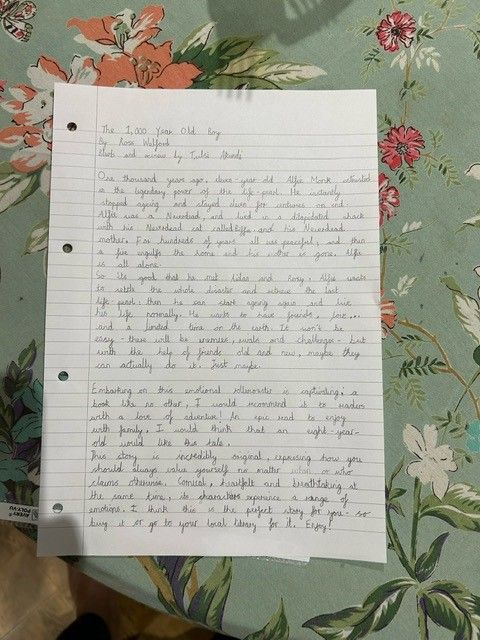 The 1,000 Year Old Boy
By Ross Welford
blurb and review by Tulsi
One thousand years ago, eleven year old Alfie Monk
is the legendary power of the life-pearl. He instantly
stopped ageing and stayed eleven for centuries on end.
Alfie was a Neverdead, and lived in a dilapidated shack
with his Neverdead cat called Biffa and his Neverdead
mother. For hundreds of years all was peaceful, and then
a fire engulfs the home and his mother is gone. Alfie
is all alone.
So its good that he met Aidan and Roxy. Alfie wants
to settle the whole disaster and retrieve the last
life-pearl: then he can start ageing again and live
his life normally. He wants to have friends, love...
and a limited time on the earth. It won't be
easy - there will be enemies, rivals and challenges - but
with the help of friends old and new, maybe they
can actually do it. Just maybe.
Embarking on this emotional rollercoaster is captivating, a
book like no other. I would recommend it to readers
with a love of adventure! An epic read to enjoy
with family, I would think that an eight-year-
old would like this tale.
This story is incredibly original, expressing how you
should always value yourself no matter what or who
claims otherwise. Comical, heartfelt and breathtaking at
the same time, its characters experience a range of
emotions. I think this is the perfect story for you - so
buy it or go to your local library for it. Enjoy!
AVERY
POLYVU